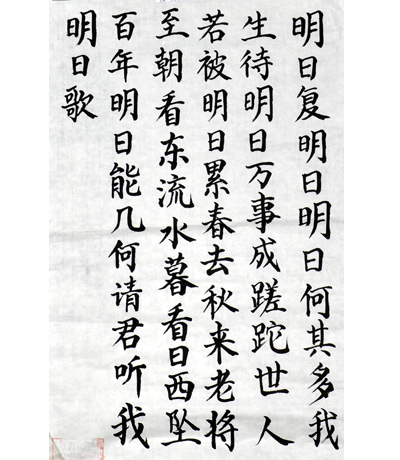 明日复明日明日何其多我
生待明日万事成蹉跎世人
若被明日累春去秋来老将
至朝看东流水暮看日西坠
百年明日能几何请君听我
明日歌